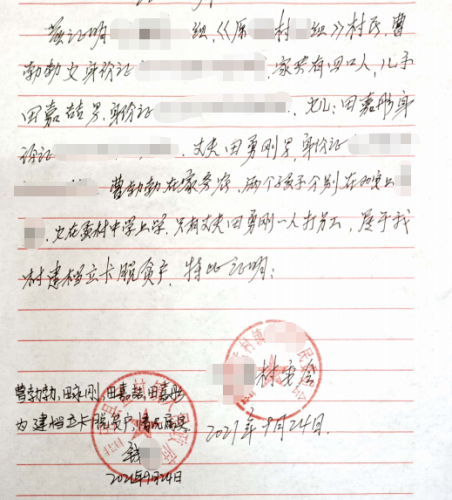 兹证明 组,《原 村 组》村民,曹
勃勃女身份证 ,家共有四口人,儿子
田嘉喆男,身份证 ,女儿:田嘉彤身
份证 ,丈夫田勇刚男,身份证
曹勃勃在家务农,两个孩子分别在 上
,女在 村中学上学,只有丈夫田勇刚一人打劳工,属于我
村建档立卡脱贫户,特此证明:
村委会
2021年9月24日.
曹勃勃,田勇刚,田嘉喆,田嘉彤
为建档立卡脱贫户,情况属实
2021年9月24日